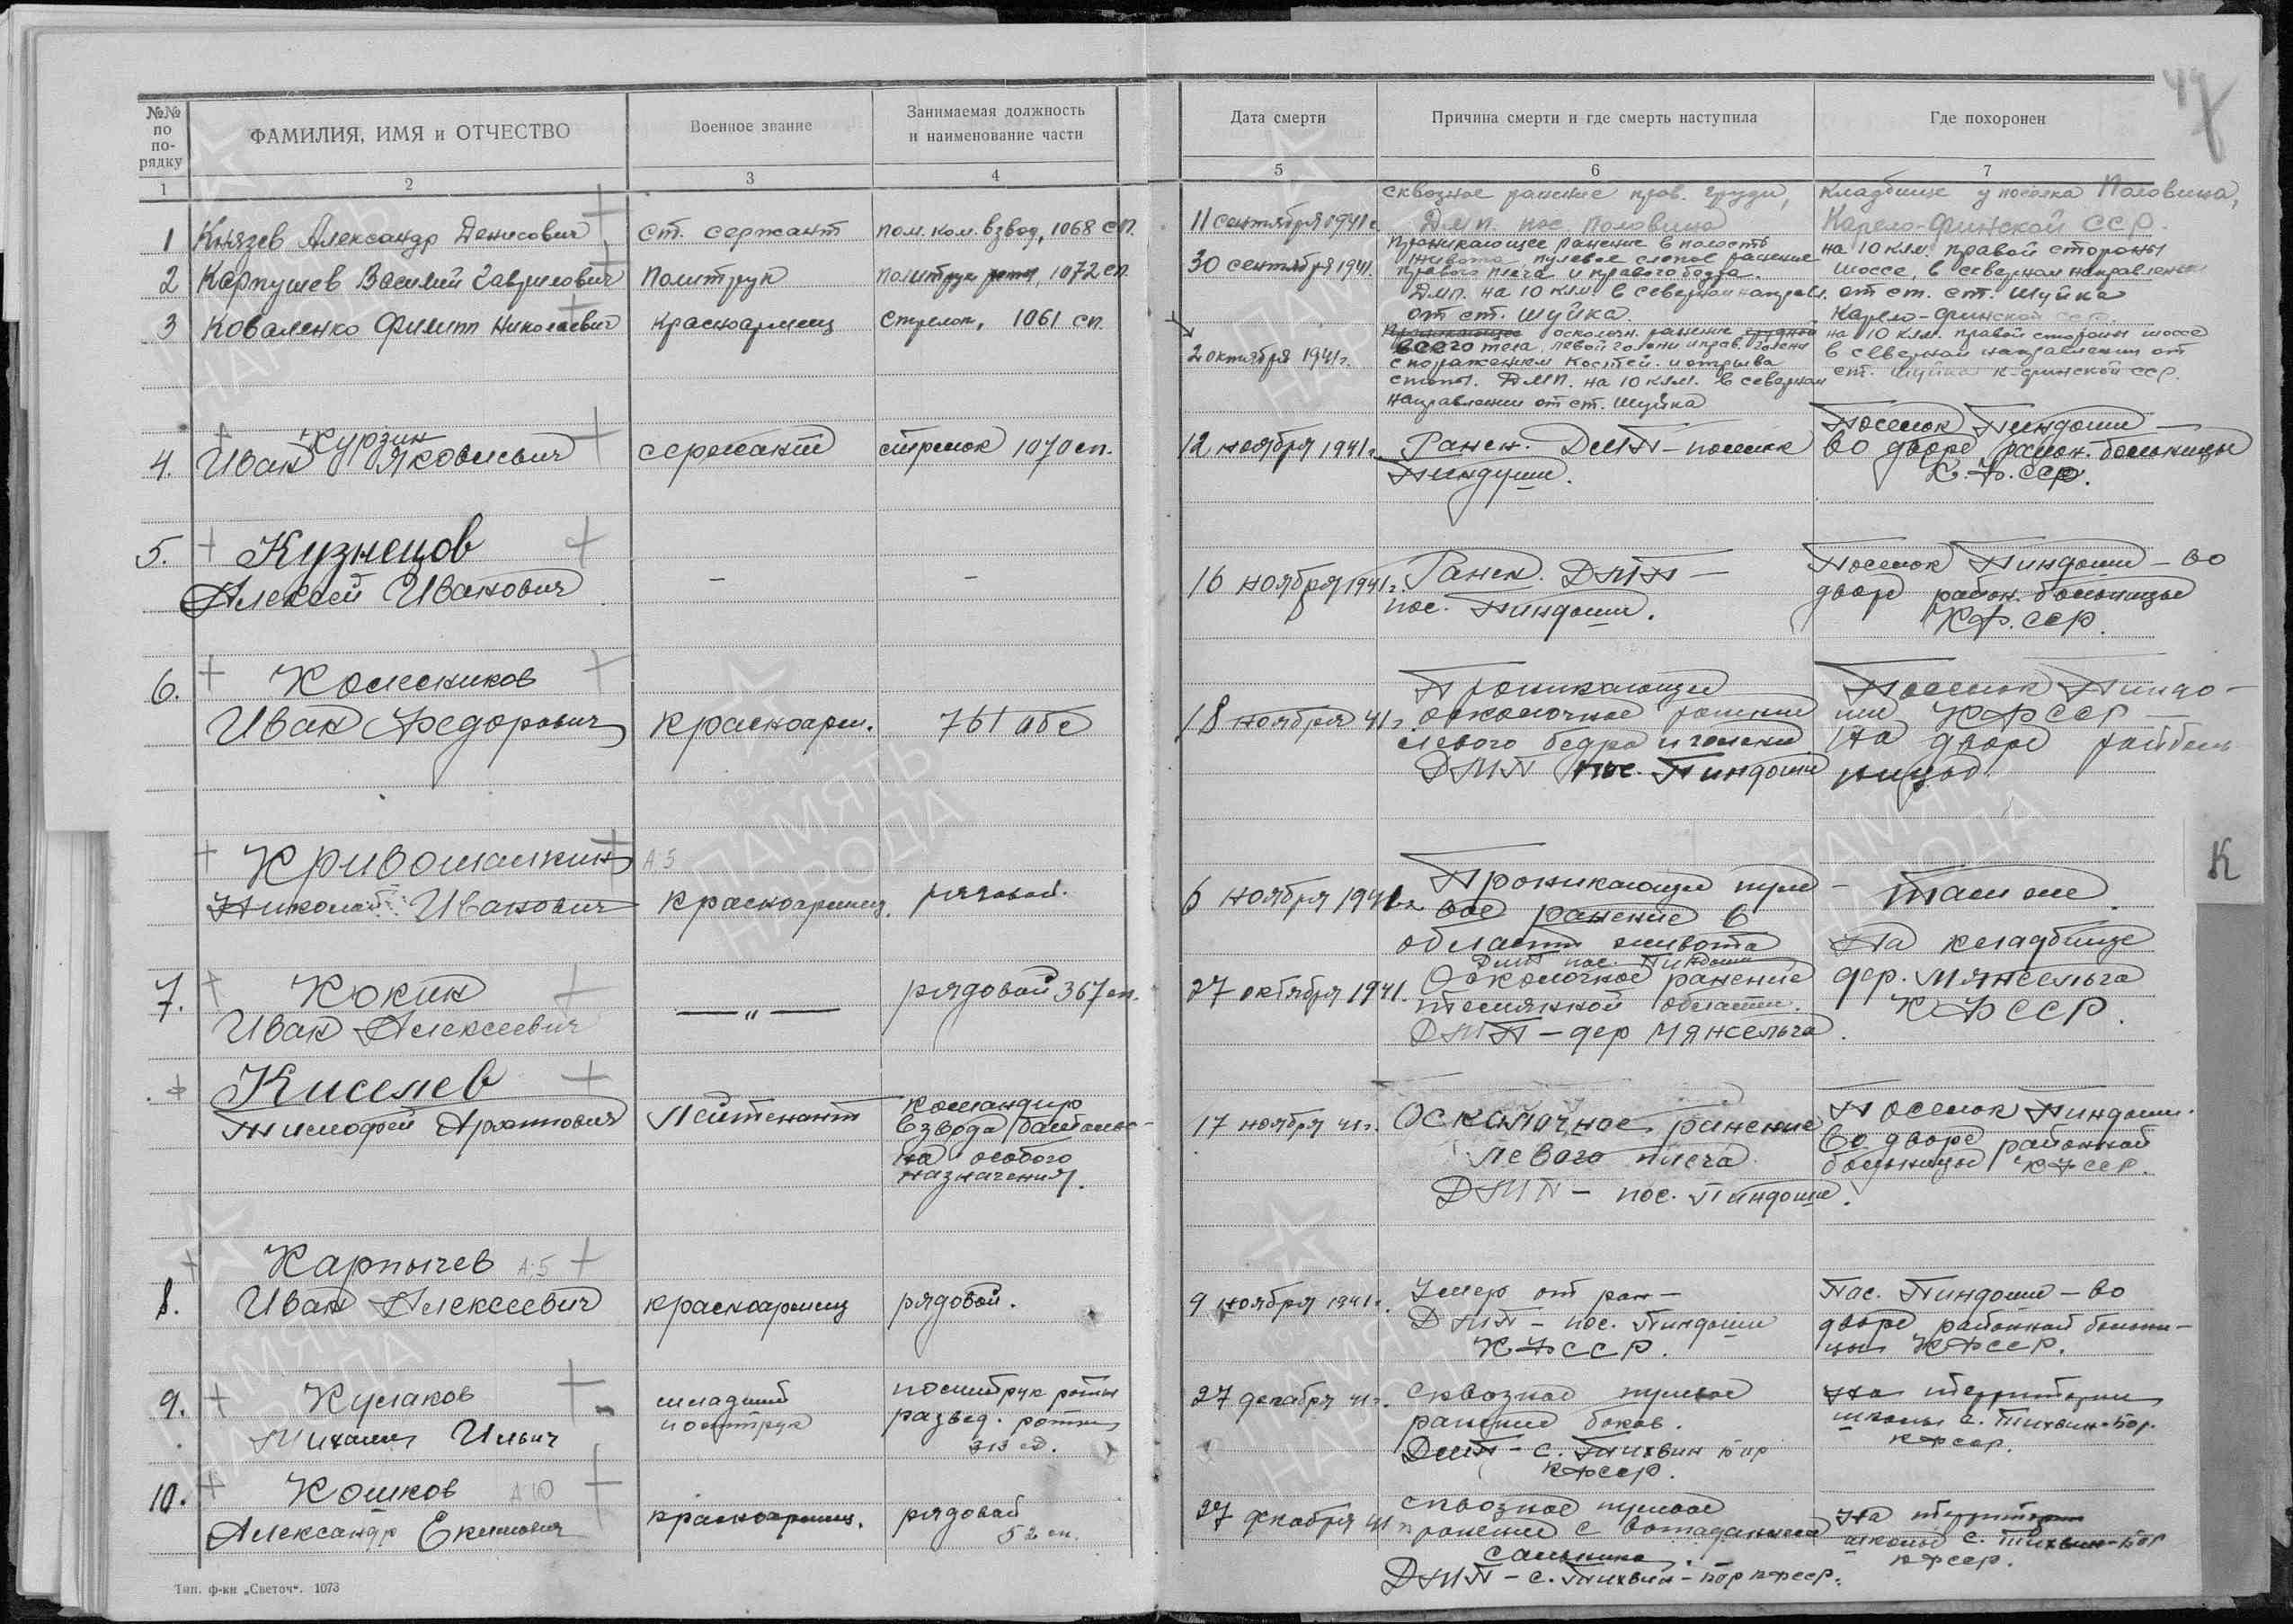 47
№№ по по-рядку
ФАМИЛИЯ, ИМЯ и ОТЧЕСТВО
Военное звание
Занимаемая должность и наименование части
Дата смерти
Причина смерти и где смерть наступила
Где похоронен
1 2 3 4 5 6 7
1 Князев Александр Денисович
ст. сержант
пом. ком. взвод, 1068 сп.
11 сентября 1941 г.
сквозное ранение прав. груди,
ДМП. пос. Половина
кладбище у поселка Половина,
Карело-Финской ССР.
2 Карпушев Василий Гаврилович
политрук
политрук роты, 1072 сп
30 сентября 1941.
Проникающее ранение в полость
живота, пулевое слепое ранение
правого плеча и правого бедра.
ДМП. на 10 клм. в северном направл.
от ст. Шуйка.
на 10 клм. правой стороны
шоссе, в северном направлении
от ст. ст. Шуйка
Карело-Финской ССР.
3 Коваленко Филипп Николаевич
красноармеец
стрелок, 1061 сп.
2 октября 1941 г.
Проникающее осколочн. ранение грудной
всего тела, левой голени и прав. голени
с поражением костей и отрыва
стопы. ДМП. на 10 клм. в северном
направлении от ст. Шуйка
на 10 клм. правой стороны шоссе
в северном направлении от
ст. Шуйка К-Финской ССР.
4. Курзин
Иван Яковлевич
сержант
стрелок 1070 сп.
12 ноября 1941 г.
Ранен. ДМП – поселок
Пиндуши.
Поселок Пиндоши –
во дворе район. больницы
К.Ф.ССР.
5. Кузнецов
Алексей Иванович
–
–
16 ноября 1941 г.
Ранен. ДМП –
пос. Пиндоши.
Поселок Пиндоши – во
дворе район. больницы
КФ.ССР.
6. Колесников
Иван Федорович
красноарм.
761 обс
18 ноября 41 г.
Проникающее
осколочное ранение
левого бедра и голени
ДМП пос. Пиндоши
Поселок Пиндо-
ши КФССР –
На дворе райболь
ницы
Кривошапкин А5
Николай Иванович
красноармеец
рядовой.
6 ноября 1941 г.
Проникающее пуле-
вое ранение в
области живота
ДМП пос. Пиндоши
там же.
К
7. Кокин
Иван Алексеевич
— „ —
рядовой 367 сп.
27 октября 1941.
Осколочное ранение
темянной области.
ДМП – дер Мянсельга.
На кладбище
дер. Мянсельга
КФССР.
Киселев
Тимофей Архипович
Лейтенант
командир
взвода батальо-
на особого
назначения.
17 ноября 41 г.
Осколочное ранение
левого плеча
ДМП – пос. Пиндоши.
Поселок Пиндоши.
во дворе районной
больницы КФССР.
8. Карпычев А5
Иван Алексеевич
красноармеец
рядовой.
9 ноября 1941 г.
Умер от ран –
ДМП – пос. Пиндоши
КФССР.
Пос. Пиндоши – во
дворе районной больни-
цы КФССР.
9. Кулаков
Михаил Ильич
младший
политрук
политрук роты
развед. роты
313 сд.
27 декабря 41 г.
Сквозное пулевое
ранение боков.
ДМП – с. Тихвин Бор
КФССР.
На территории
школы с. Тихвин-Бор.
КФССР.
10. Кошков А10
Александр Екимович
красноармеец.
рядовой
52 сп.
27 декабря 41 г
сквозное пулевое
ранение с выпадением
сальника.
ДМП – с. Тихвин-Бор КФССР.
На территории
школы с. Тихвин-Бор
КФССР.
Тип. ф-ки „Светоч“. 1073
ПАМЯТЬ
НАРОДА